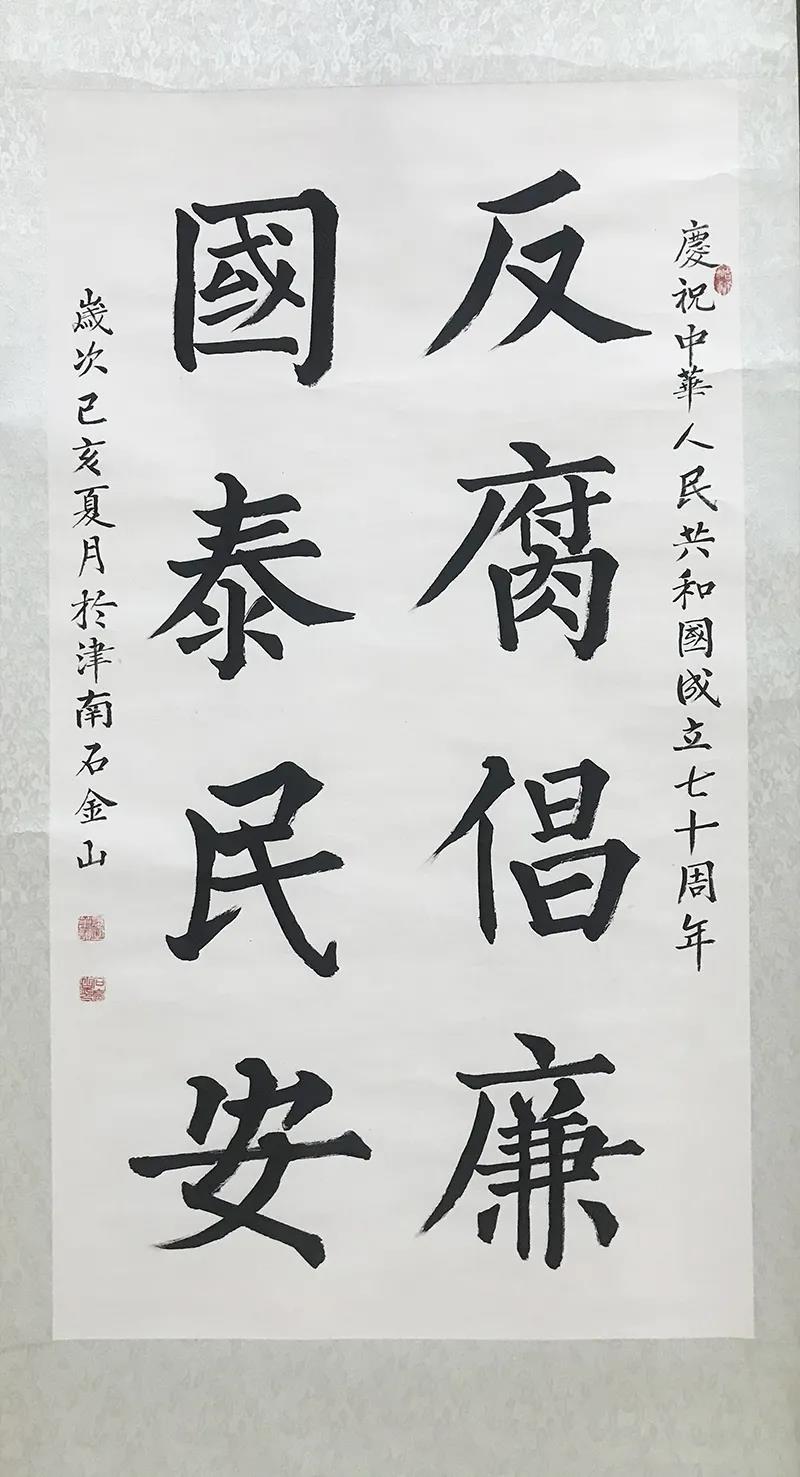 慶祝中華人民共和國成立七十周年
反腐倡廉
國泰民安
歲次己亥夏月於津南石金山